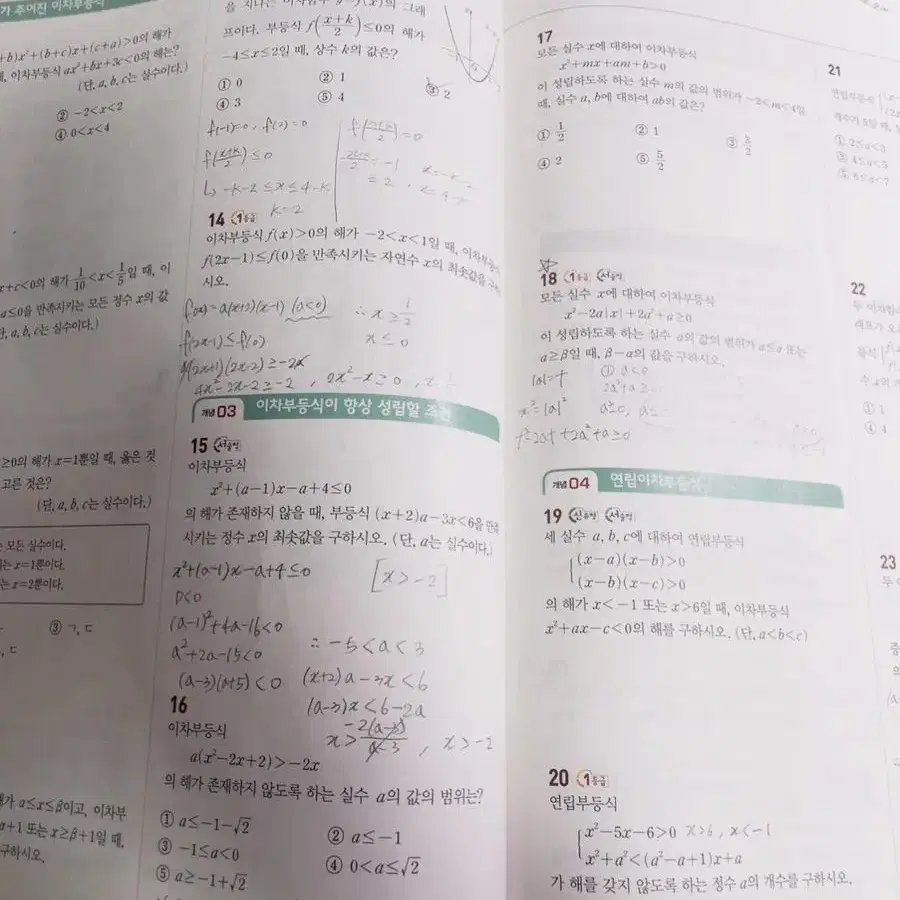 가 주어진 이차부등식
+b)x²+(b+c)x+(c+a)>0의 해가
, 이차부등식 ax²+bx+3c<0의 해는?
(단, a, b, c는 실수이다.)
② -2<x<2
④ 0<x<4
x+c<0의 해가 1/10<x<1/5일 때, 이
a≤0을 만족시키는 모든 정수 x의 값
단, a, b, c는 실수이다.)
≥0의 해가 x=1뿐일 때, 옳은 것
고른 것은?
(단, a, b, c는 실수이다.)
모든 실수이다.
는 x=1뿐이다.
는 x=2뿐이다.
③ ㄱ, ㄷ
, ㄷ
해가 α≤x≤β이고, 이차부
α+1 또는 x≥β+1일 때,
구하시오.
을 지나는 이차함수 y=f(x)의 그래
프이다. 부등식 f((x+k)/2)≤0의 해가
-4≤x≤2일 때, 상수 k의 값은?
① 0
② 1
③ 2
④ 3
⑤ 4
f(-1)=0, f(2)=0
f((x+k)/2)≤0
↳ -k-2≤x≤4-k
k=2
f((x+k)/2)=0
(x+k)/2=-1
=2,
14 1등급
이차부등식 f(x)>0의 해가 -2<x<1일 때, 이차부등식
f(2x-1)≤f(0)을 만족시키는 자연수 x의 최솟값을 구하
시오.
f(x)=a(x+2)(x-1) (a<0)
∴ x≥1/2
f(2x-1)≤f(0)
x≤0
(2x+1)(2x-2)≥-2
4x²-2x-2≥-2, 2x²-x≥0,
개념 03 이차부등식이 항상 성립할 조건
15 서술형
이차부등식
x²+(a-1)x-a+4≤0
의 해가 존재하지 않을 때, 부등식 (x+2)a-3x<6을 만족
시키는 정수 x의 최솟값을 구하시오. (단, a는 실수이다.)
x²+(a-1)x-a+4≤0
[x>-2]
D<0
(a-1)²+4a-16<0
a²+2a-15<0
∴ -5<a<3
(a-3)(a+5)<0
(x+2)a-3x<6
(a-3)x<6-2a
x>-2(a-3)/(a-3), x>-2
16
이차부등식
a(x²-2x+2)>-2x
의 해가 존재하지 않도록 하는 실수 a의 값의 범위는?
① a≤-1-√2
② a≤-1
③ -1≤a<0
④ 0<a≤√2
⑤ a≥-1+√2
17
모든 실수 x에 대하여 이차부등식
x²+mx+am+b>0
이 성립하도록 하는 실수 m의 값의 범위가 -2<m<4일
때, 실수 a, b에 대하여 ab의 값은?
① 1/2
② 1
③ 3/2
④ 2
⑤ 5/2
18 1등급 서술형
모든 실수 x에 대하여 이차부등식
x²-2a|x|+2a²+a≥0
이 성립하도록 하는 실수 a의 값의 범위가 a≤α 또는
a≥β일 때, β-α의 값을 구하시오.
|x|=t
① a<0
2a²+a≥
x²=|x|²
t²-2at+2a²+a≥0
개념 04 연립이차부등식
19 신유형 서술형
세 실수 a, b, c에 대하여 연립부등식
(x-a)(x-b)>0
(x-b)(x-c)>0
의 해가 x<-1 또는 x>6일 때, 이차부등식
x²+ax-c<0의 해를 구하시오. (단, a<b<c)
20 1등급
연립부등식
x²-5x-6>0 x>6, x<-1
x²+a²<(a²-a+1)x+a
가 해를 갖지 않도록 하는 정수 a의 개수를 구하시오.
21
연립부등식
① 2≤a<3
③ 4≤a<5
⑤ 6≤a<7
22
두 이차함수
① 1
④ 4
23
두 이